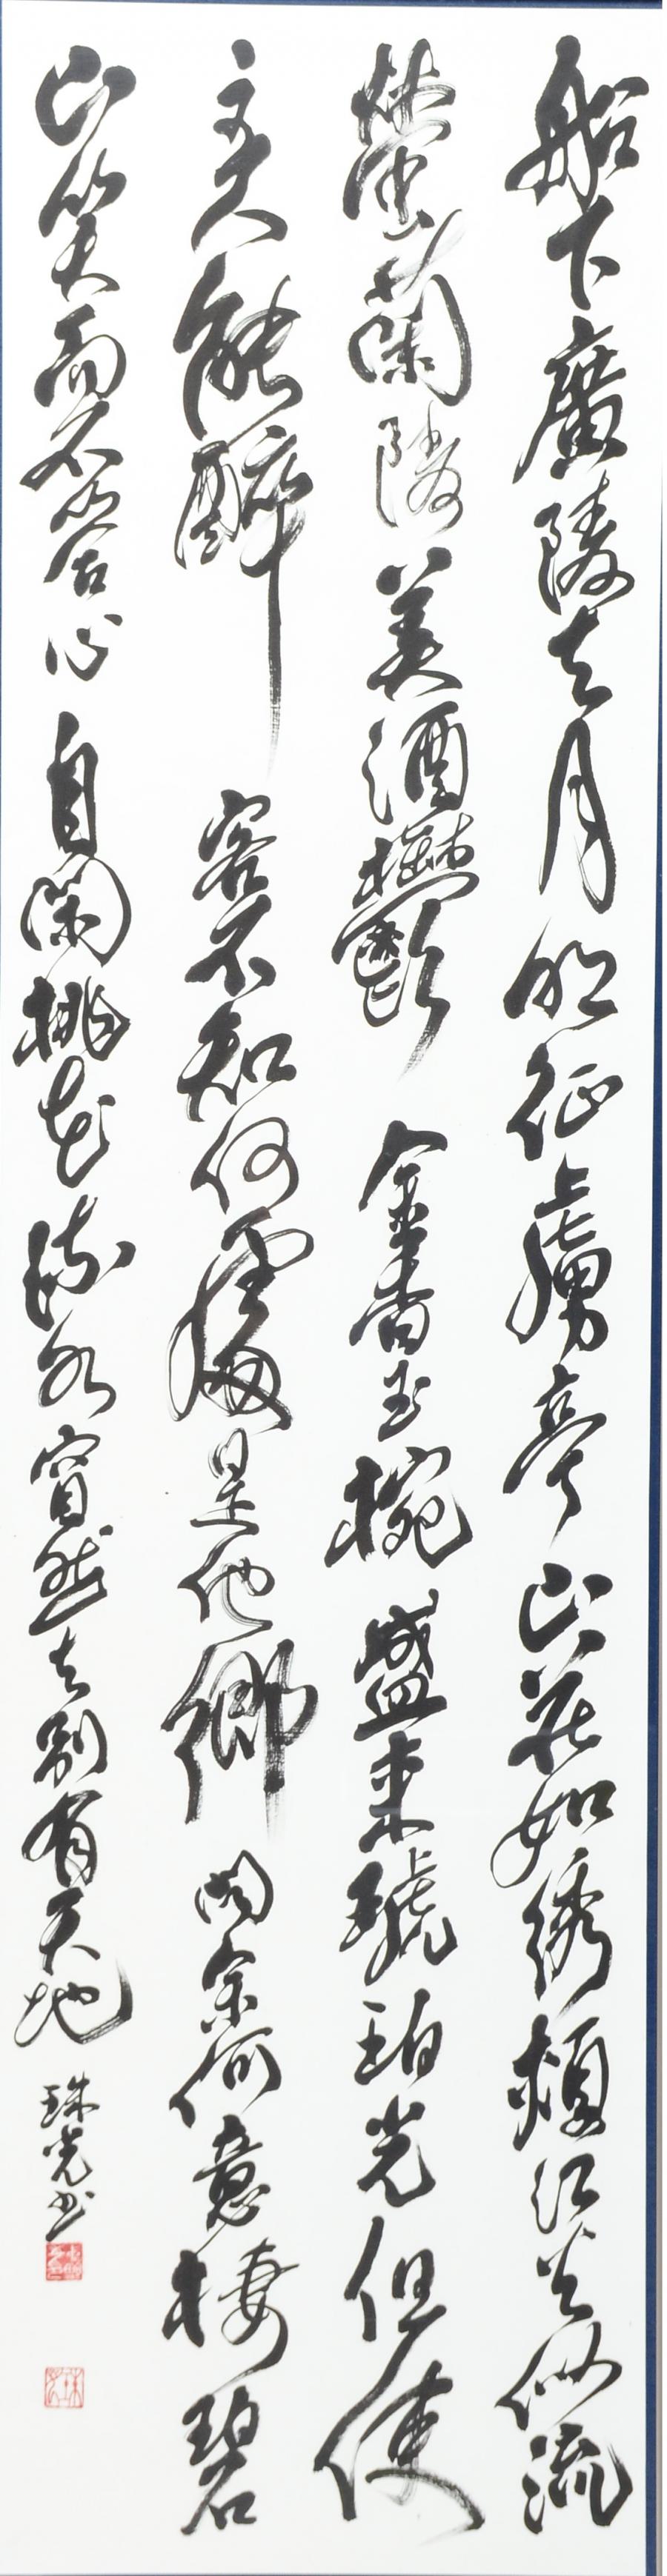 船下廣陵去月明征虜亭山花如綉頰江火似流
螢蘭陵美酒欝金香玉椀盛来琥珀光但使
主人能醉客不知何處是他郷問余何意棲碧
山笑而不答心自閑桃花流水窅然去別有天地
珠光書